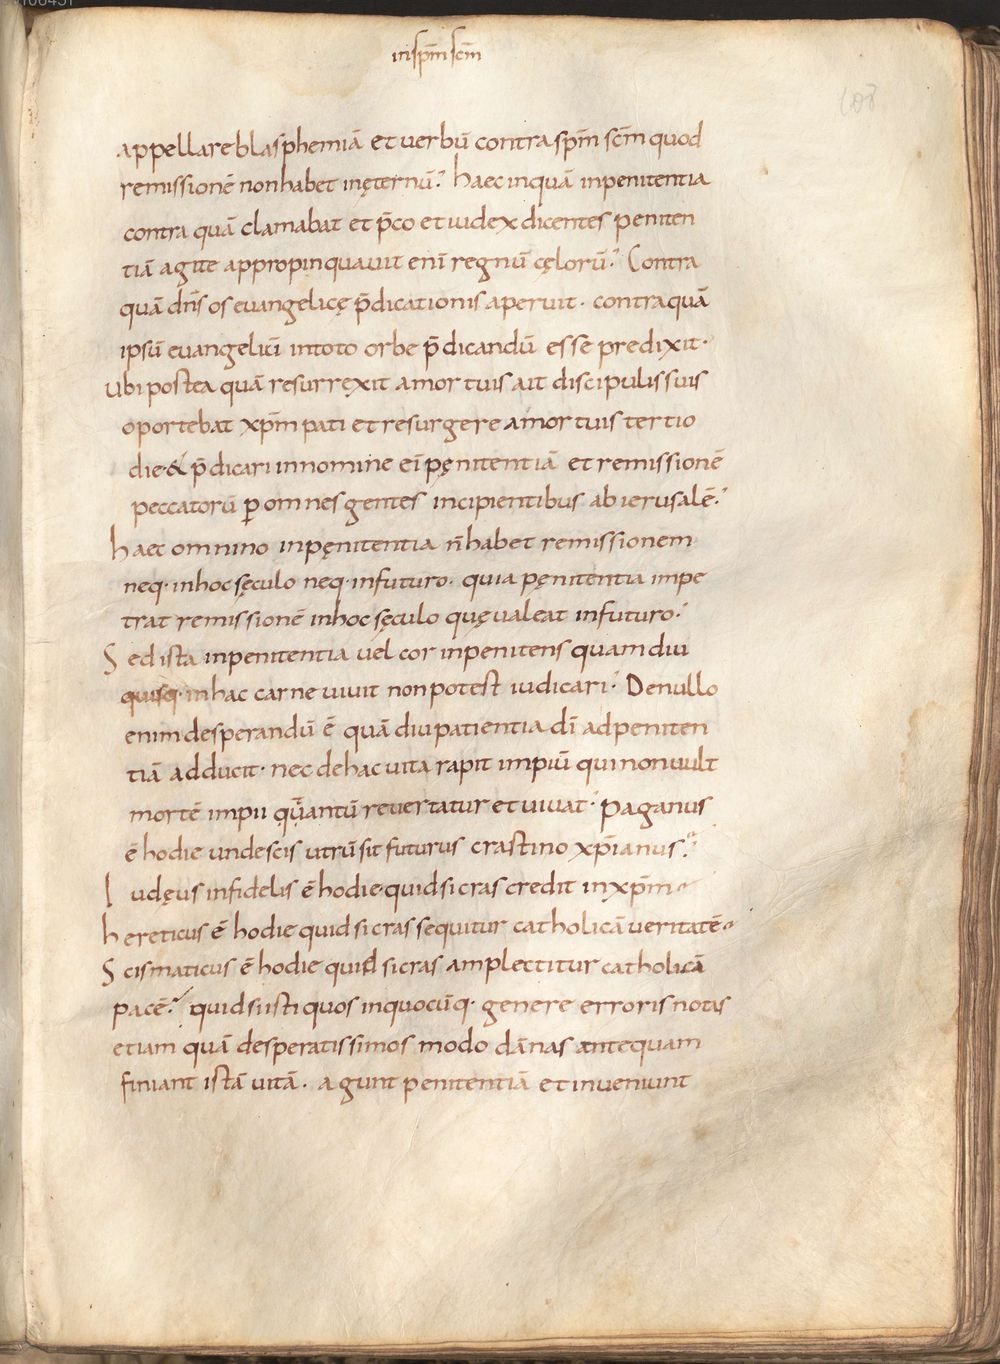 in sp̄m sc̄m
108
appellare blasphemiā et uerbū contra sp̄m sc̄m quod
remissionē non habet in ęternū. haec inquā inpenitentia
contra quā clamabat et p̄co et iudex dicentes peniten
tiā agite appropinquauit enī regnū cęlorū. Contra
quā dn̄s os euangelicę p̄dicationis aperuit. contra quā
ipsū euangeliū in toto orbe p̄dicandū esse predixit.
Ubi postea quā resurrexit a mortuis ait discipulis suis
oportebat xp̄m pati et resurgere a mortuis tertio
die & p̄dicari in nomine eī pęnitentiā et remissionē
peccatorū ꝑ omnes gentes incipientibus ab ierusalē.
haec omnino inpęnitentia n̄ habet remissionem
neq. in hoc sęculo neq. in futuro. quia pęnitentia impe
trat remissionē in hoc sęculo quę ualeat in futuro.
Sed ista inpenitentia uel cor inpenitens quamdiu
quisq. in hac carne uiuit non potest iudicari. De nullo
enim desperandū ē quā diu patientia dī ad peniten
tiā adducit. nec de hac uita rapit impiū qui non uult
mortē impii quantū reuertatur et uiuat. paganus
ē hodie unde scis utrū sit futurus crastino xp̄ianus.
Iudęus infidelis ē hodie quid si cras credit in xp̄m
hereticus ē hodie quid si cras sequitur catholicā ueritatē
Scismaticus ē hodie quid si cras amplectitur catholicā
pacē. quid si isti quos in quocūq. genere erroris notas
etiam quā desperatissimos modo dānas antequam
finiant istā uitā. agunt penitentiā et inueniunt